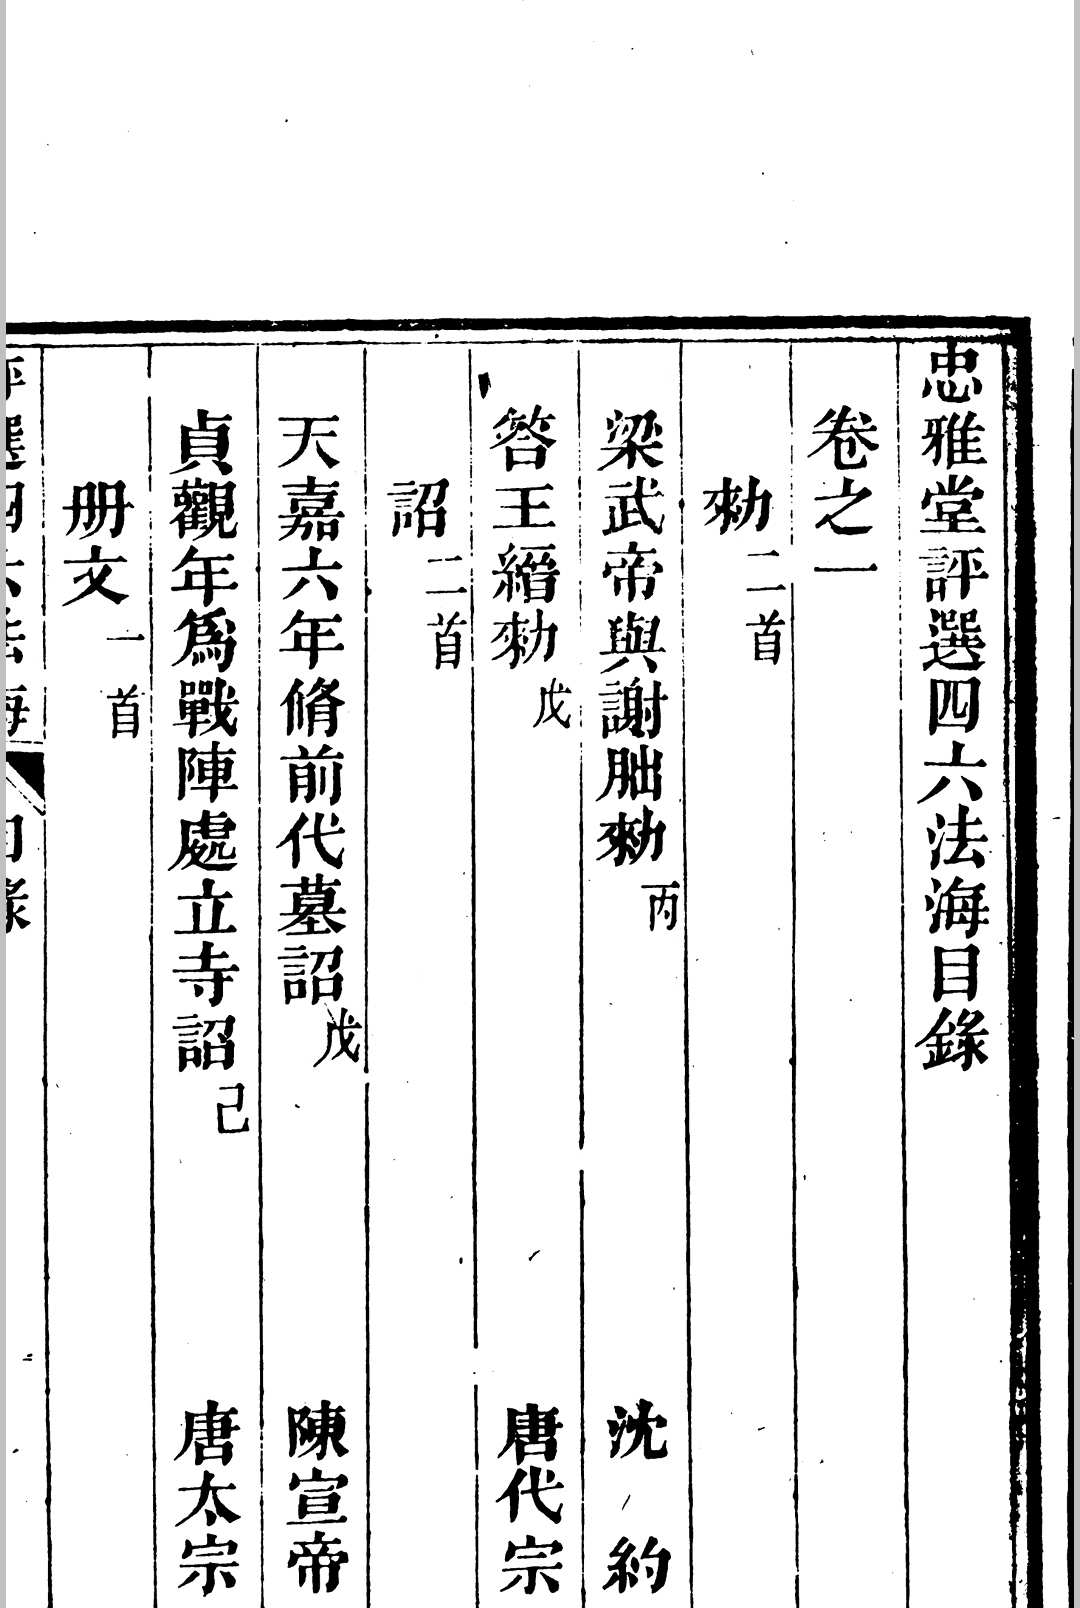 忠雅堂評選四六法海目錄
卷之一
勑二首
梁武帝與謝朏勑丙　沈約
答王縉勑戊　唐代宗
詔二首
天嘉六年脩前代墓詔戊　陳宣帝
貞觀年爲戰陣處立寺詔己　唐太宗
册文一首
評選四六法海　目錄